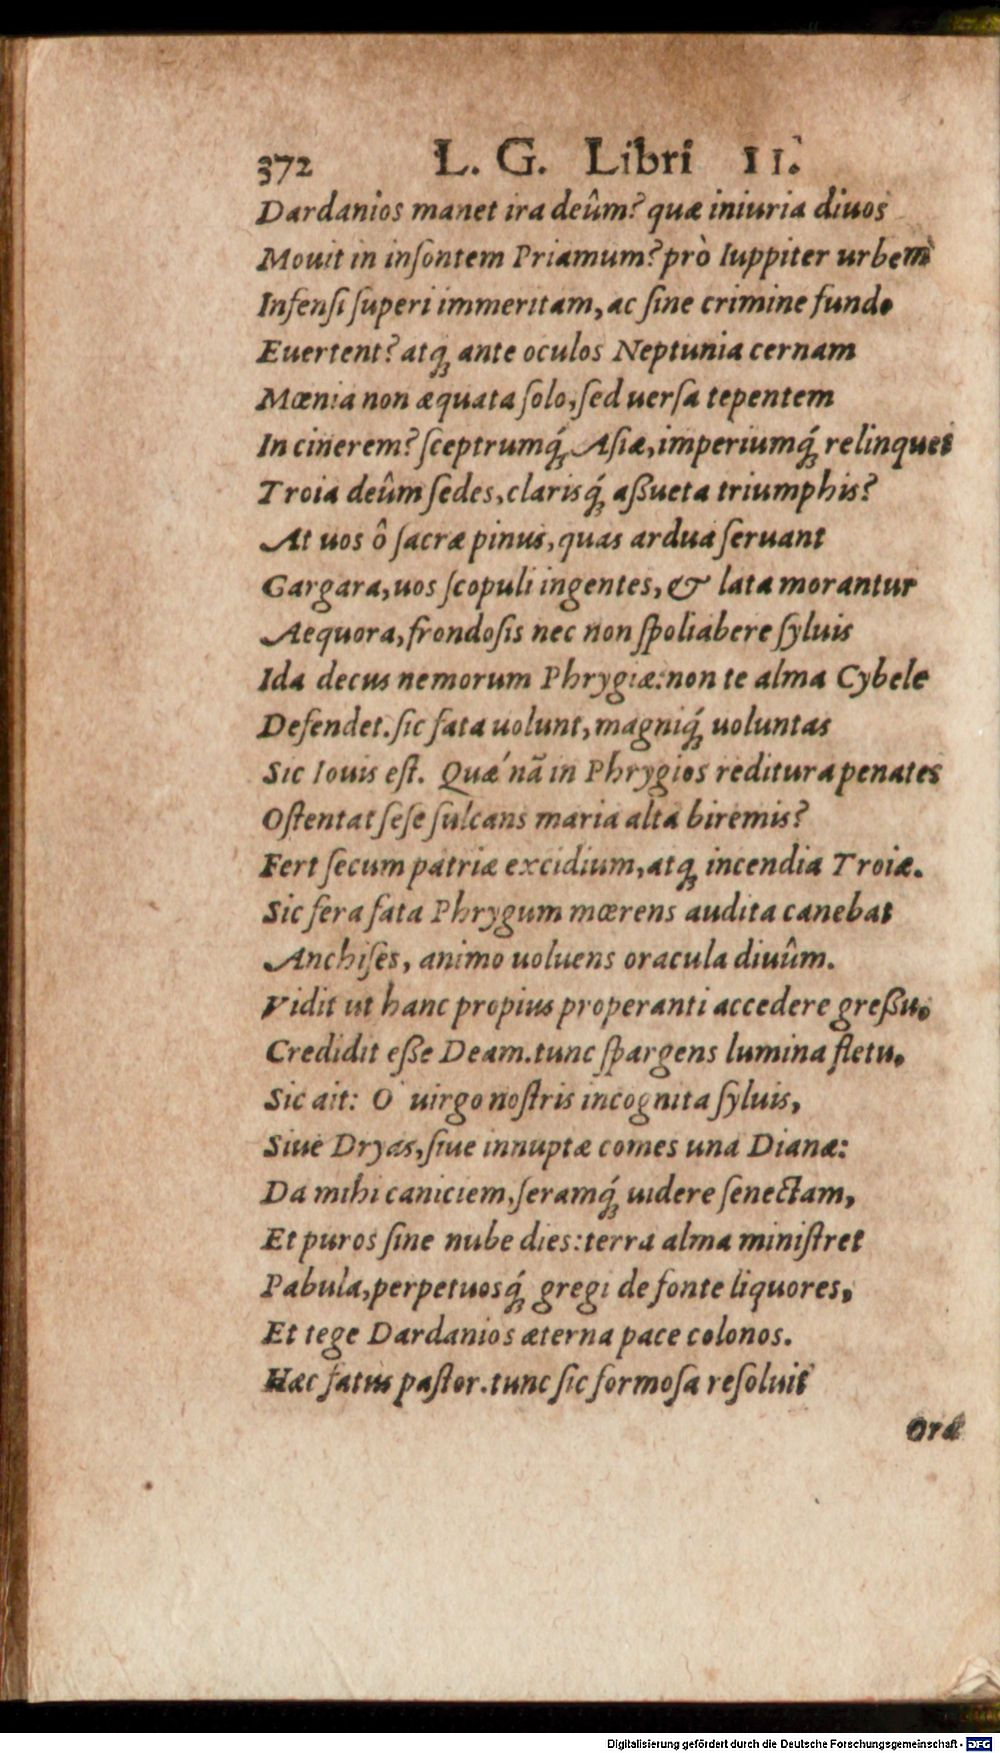 372 L. G. Libri II.
Dardanios manet ira deûm? quæ iniuria diuos
Mouit in inſontem Priamum? prò Iuppiter urbem
Infenſi ſuperi immeritam, ac ſine crimine fundo
Euertent? atq́ꝫ ante oculos Neptunia cernam
Mœnia non æquata ſolo, ſed uerſa tepentem
In cinerem? ſceptrumq́ꝫ Aſiæ, imperiumq́ꝫ relinquet
Troia deûm ſedes, clarisq́ꝫ aßueta triumphis?
At uos ô ſacræ pinus, quas ardua ſeruant
Gargara, uos ſcopuli ingentes, & lata morantur
Aequora, frondoſis nec non ſpoliabere ſyluis
Ida decus nemorum Phrygiæ: non te alma Cybele
Defendet. ſic fata uolunt, magniq́ꝫ uoluntas
Sic Iouis eſt. Quæ' nã in Phrygios reditura penates
Oſtentat ſeſe ſulcans maria alta biremis?
Fert ſecum patriæ excidium, atqꝫ incendia Troiæ.
Sic fera fata Phrygum mœrens audita canebat
Anchiſes, animo uoluens oracula diuûm.
Vidit ut hanc propius properanti accedere greßu,
Credidit eße Deam. tunc ſpargens lumina fletu,
Sic ait: O uirgo noſtris incognita ſyluis,
Siue Dryas, ſiue innuptæ comes una Dianæ:
Da mihi caniciem, ſeramq́ꝫ uidere ſenectam,
Et puros ſine nube dies: terra alma miniſtret
Pabula, perpetuosq́ꝫ gregi de fonte liquores,
Et tege Dardanios æterna pace colonos.
Hæc fatus paſtor. tunc ſic formoſa reſoluit
Ora
Digitalisierung gefördert durch die Deutsche Forschungsgemeinschaft - DFG